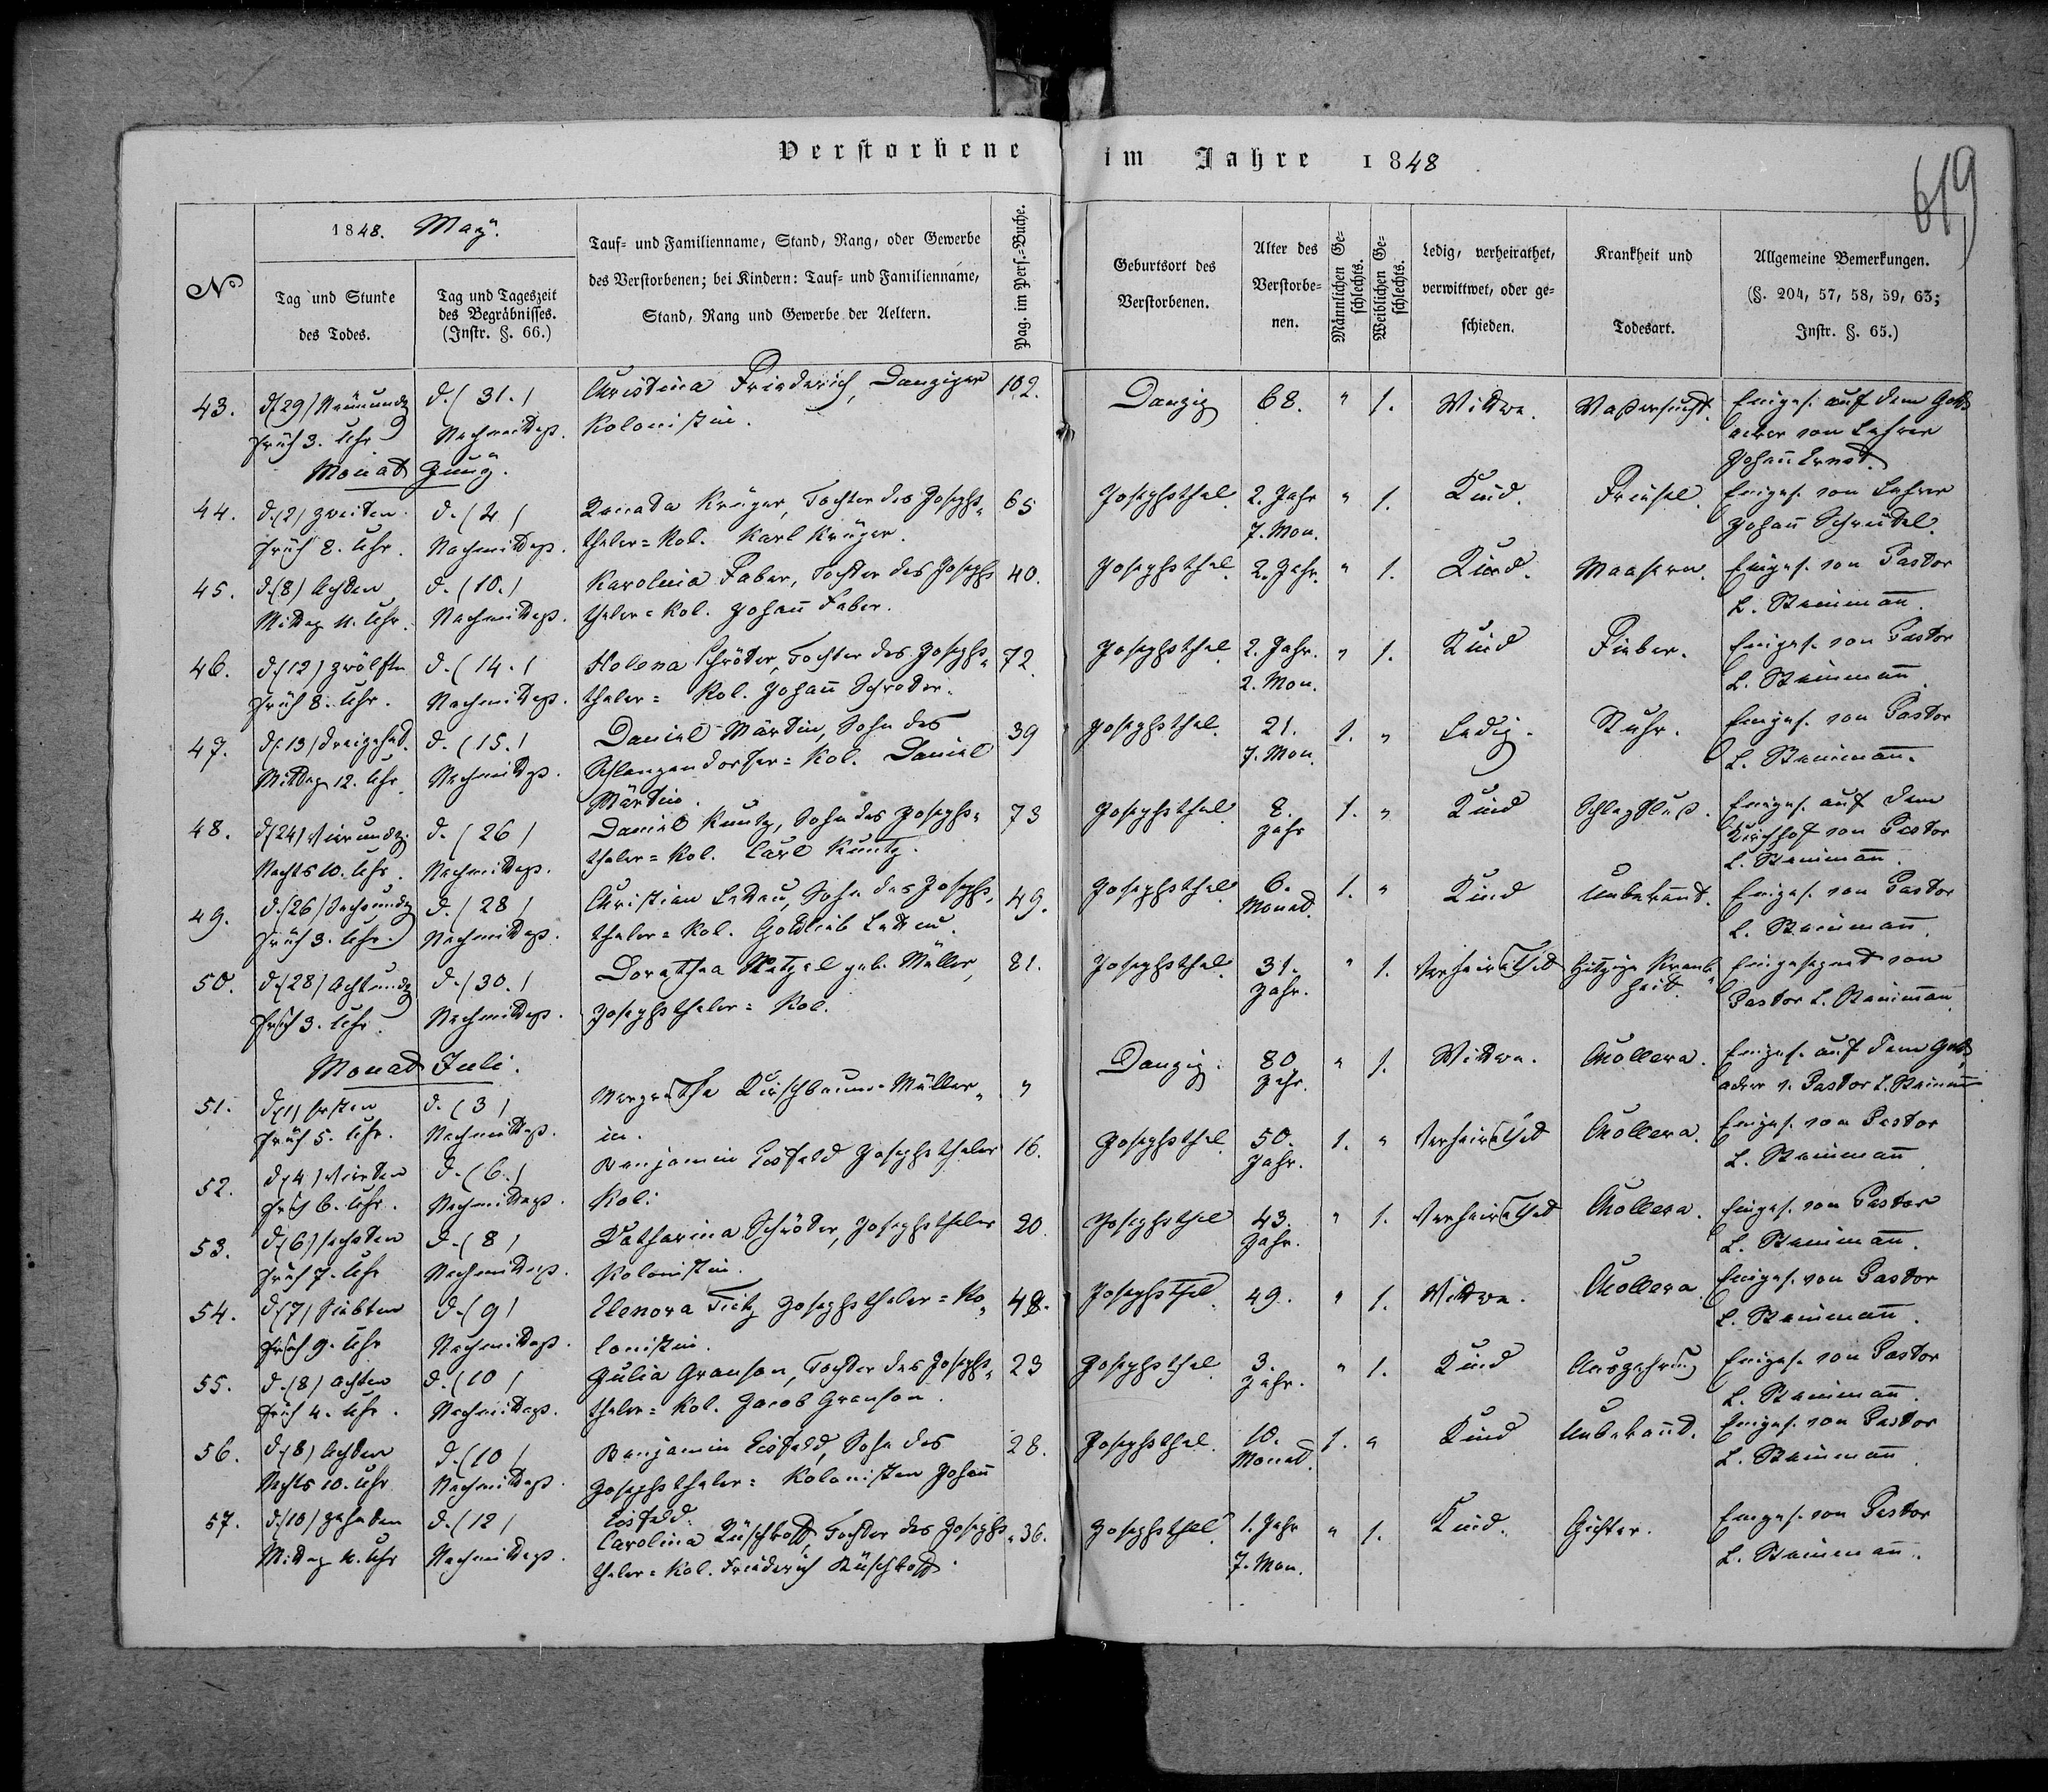 Verstorbene im Jahre 1848
619
No
1848. May.
Tag und Stunde
des Todes.
Tag und Tageszeit
des Begräbnisses.
(Instr. §. 66.)
Tauf- und Familienname, Stand, Rang, oder Gewerbe
des Verstorbenen; bei Kindern: Tauf- und Familienname,
Stand, Rang und Gewerbe der Aeltern.
Pag. im Pers.-Buche.
Geburtsort des
Verstorbenen.
Alter des
Verstorbe-
nen.
Männlichen Ge-
schlechts.
Weiblichen Ge-
schlechts.
Ledig, verheirathet,
verwittwet, oder ge-
schieden.
Krankheit und
Todesart.
Allgemeine Bemerkungen.
(§. 204, 57, 58, 59, 63;
Instr. §. 65.)
43. d. (29) Neunundzg d. (31.) Christina Friederich, Danziger 102. Danzig 68. " 1. Wittwe. Waßersucht. Einges. auf dem Gotts
früh 3. Uhr Nachmittags. Kolonistin. acker von Lehrer
Johann Ernst.
Monat Juny.
44. d. (2) zweiten d. (4) Renata Krüger, Tochter des Josephs- 65 Josephsthal. 2. Jahr " 1. Kind. Friesel. Einges. von Lehrer
früh 8. Uhr. Nachmittags. thaler=Kol. Karl Krüger. 7. Mon. Johann Scheidel.
45. d. (8) Achten d. (10.) Karolina Faber, Tochter des Josephs 40. Josephsthal. 2. Jahr. " 1. Kind. Maasern. Einges. von Pastor
Mittag 11. Uhr. Nachmittags. thaler=Kol. Johann Faber. L. Steinmann.
46. d. (12) zwölften d. (14.) Helena Schröder, Tochter des Josephs- 72. Josephsthal. 2. Jahr. " 1. Kind Fieber. Einges. von Pastor
früh 8. Uhr. Nachmittags. thaler= Kol. Johann Schröder. 2. Mon. L. Steinmann.
47. d. (13) dreizehnt. d. (15.) Daniel Märtin, Sohn des 39 Josephsthal. 21. 1. " Ledig. Ruhr. Einges. von Pastor
Mittag 12. Uhr. Nachmittags. Schlangendorfer=Kol. Daniel 7. Mon. L. Steinmann.
Märtin.
48. d. (24) Vierundzg. d. (26) Daniel Kuntz, Sohn des Josephs- 73 Josephsthal. 8. 1. " Kind Schlagfluß. Einges. auf dem
Nachts 10. Uhr. Nachmittags. thaler=Kol. Carl Kuntz. Jahr Kirchhof von Pastor
L. Steinmann.
49. d. (26) Sechsundzg d. (28) Christian Ledeu, Sohn des Josephs- 49. Josephsthal. 6. 1. " Kind Unbekannt. Einges. von Pastor
früh 3. Uhr. Nachmittags. thaler=Kol. Gottlieb Ledeu. Monat. L. Steinmann.
50. d. (28) Achtundzg d. (30.) Dorothea Metzel geb. Müller, 81. Josephsthal. 31. " 1. Verheirathet Hitzige Krank- Eingesegnet von
früh 3. Uhr. Nachmittags. Josephsthaler=Kol. Jahr. heit. Pastor L. Steinmann.
Monat Juli.
51. d. (1) ersten d. (3) Margretha Kirschbaum Müller- " Danzig. 80 " 1. Wittwe. Chollera. Einges. auf dem Gotts
früh 5. Uhr. Nachmittags. in. Jahr. acker v. Pastor L. Steinmann
52. d. (4) Vierten d. (6.) Benjamin Eisfeld Josephsthaler 16. Josephsthal. 50. 1. " Verheirathet Chollera. Einges. von Pastor
früh 6. Uhr. Nachmittags. Kol: Jahr. L. Steinmann.
53. d. (6) sechsten d. (8) Katharina Schröder, Josephsthaler 20. Josephsthal 43. " 1. Verheirathet Chollera. Einges. von Pastor
früh 7. Uhr Nachmittags. Kolonistin. Jahr. L. Steinmann.
54. d. (7) Siebten d. (9) Elenora Tietz Josephsthaler=Ko- 48. Josephsthal. 49. " 1. Wittwe. Chollera. Einges. von Pastor
früh 9. Uhr Nachmittags. lonistin. L. Steinmann.
55. d. (8) achten d. (10) Julia Granson, Tochter des Josephs- 23 Josephsthal. 3. " 1. Kind Auszehrung Einges. von Pastor
früh 4. Uhr. Nachmittags. thaler=Kol. Jacob Granson. Jahr. L. Steinmann.
56. d. (8) Achten d. (10) Benjamin Eisfeld, Sohn des 28. Josephsthal. 10. 1. " Kind Unbekannt. Einges. von Pastor
Nachts 10. Uhr Nachmittags. Josephsthaler= Kolonisten Johann Monat. L. Steinmann.
Eisfeld.
57. d. (10) zehnten d. (12) Carolina Küschkoff, Tochter des Josephs- 36. Josephsthal. 1. Jahr " 1. Kind. Gichter. Einges. von Pastor
Mittag 11. Uhr Nachmittags. thaler=Kol. Friederich Küschkoff. 7. Mon. L. Steinmann.